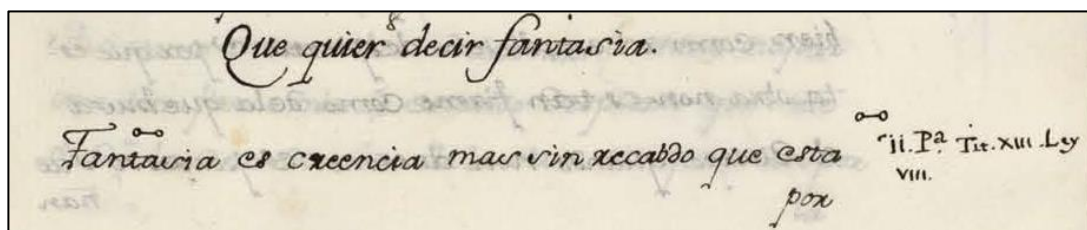 Que quier decir fantasia.
Fantasia es creencia mas sin recabdo que esta
por
ii. Pª. Tit. XIII. Ley
VIII.